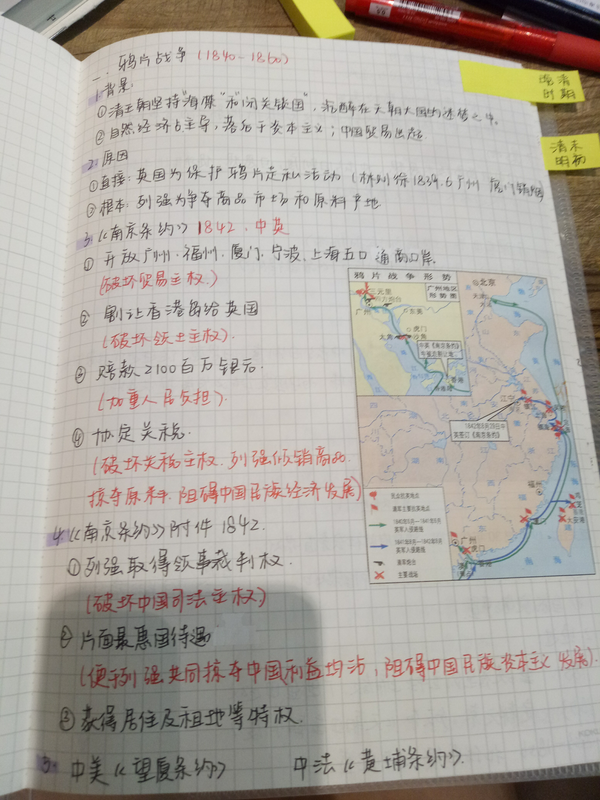 一、鸦片战争（1840-1860）
1.背景
①清王朝坚持"海禁"和"闭关锁国"，沉醉在天朝大国的迷梦之中。
②自然经济占主导，落后于资本主义；中国贸易出超
2.原因
①直接：英国为保护鸦片走私活动（林则徐1839.6广州 虎门销烟
②根本：列强为争夺商品市场和原料产地
3.《南京条约》1842.中英
①开放广州.福州.厦门.宁波.上海五口通商口岸.
（破坏贸易主权.）
②割让香港岛给英国
（破坏领土主权）.
③赔款2100百万银元.
（加重人民负担）.
④协定关税.
（破坏关税主权.列强倾销商品
掠夺原料.阻碍中国民族经济发展）
4.《南京条约》附件1842.
①列强取得领事裁判权.
（破坏中国司法主权）
②片面最惠国待遇
（便于列强共同掠夺中国,利益均沾，阻碍中国民族资本主义发展）.
③获得居住及租地等特权.
5.中美《望厦条约》 中法《黄埔条约》.
晚清
时期
清末
民初
鸦片战争形势
广州地区
形势图
三元里
广州
虎门
香港
北京
大沽
江宁
1842年8月29日中
英签订《南京条约》
福州
定海
广州
虎门
香港
主要战场